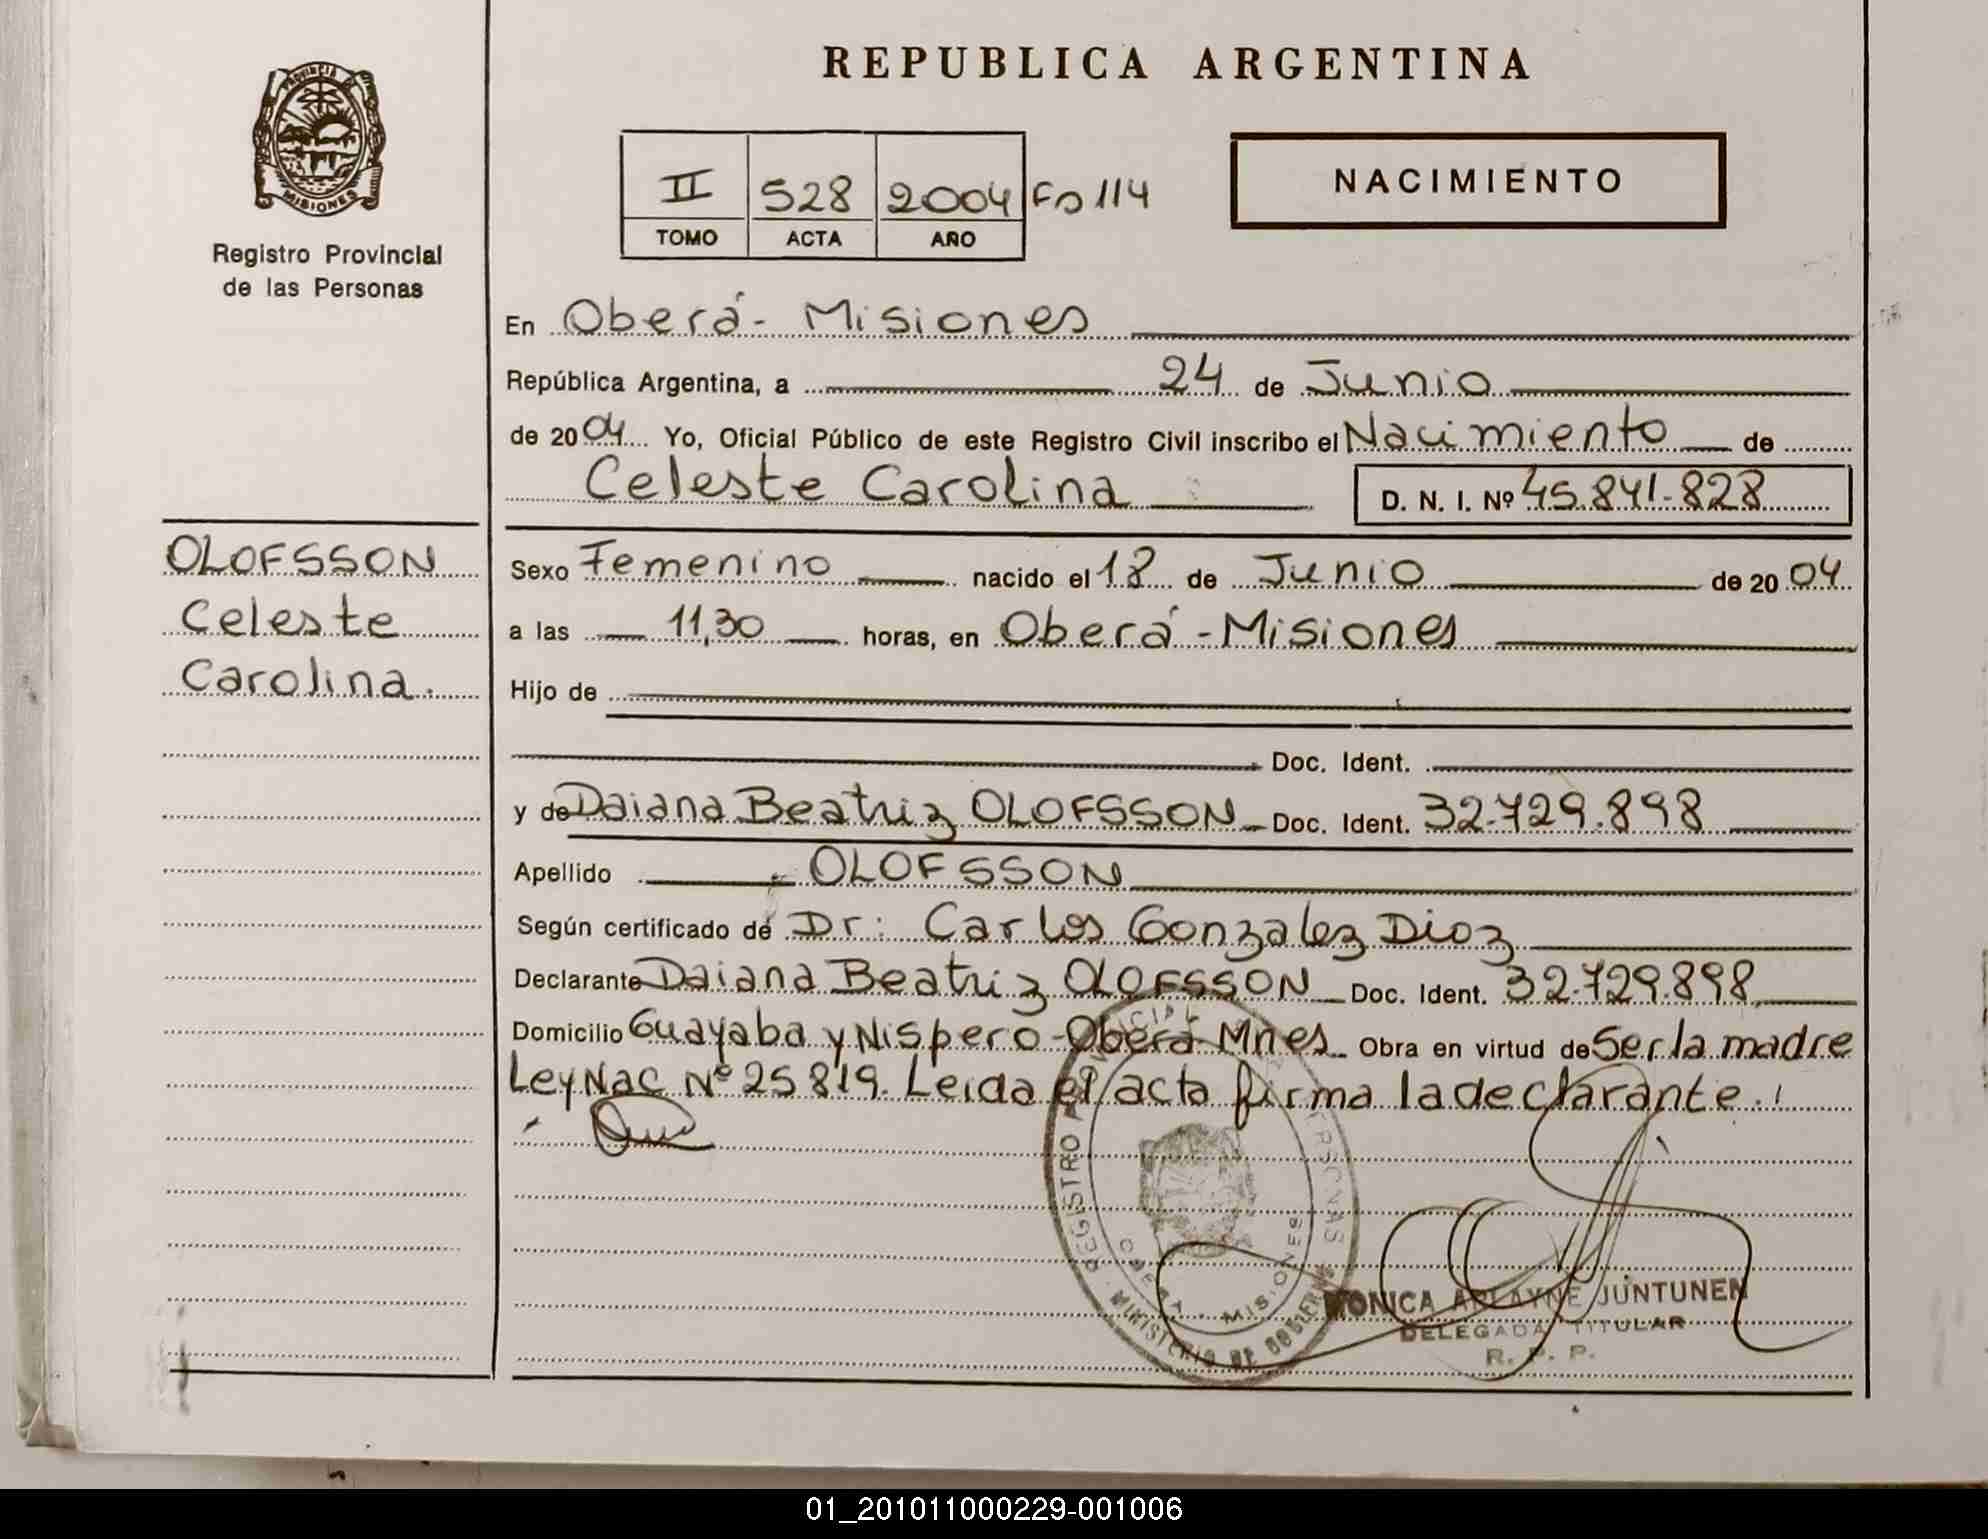 REPUBLICA ARGENTINA
PROVINCIA DE
MISIONES
Registro Provincial
de las Personas
II 528 2004 Fo 114
TOMO ACTA AÑO
NACIMIENTO
En Oberá - Misiones
República Argentina, a 24 de Junio
de 2004 Yo, Oficial Público de este Registro Civil inscribo el Nacimiento de
Celeste Carolina D. N. I. Nº 45.841.828
OLOFSSON
Celeste
Carolina.
Sexo Femenino nacido el 18 de Junio de 20 04
a las 11,30 horas, en Oberá - Misiones
Hijo de
Doc. Ident.
y de Daiana Beatriz OLOFSSON Doc. Ident. 32.729.898
Apellido OLOFSSON
Según certificado de Dr: Carlos Gonzalez Dioz
Declarante Daiana Beatriz OLOFSSON Doc. Ident. 32.729.898
Domicilio Guayaba y Nispero - Oberá Mnes Obra en virtud de Ser la madre
Ley Nac Nº 25819. Leida el acta firma la declarante.
REGISTRO PERSONAS
OBERA - MISIONES
MINISTERIO DE GOBIERNO
MONICA JUNTUNEN
DELEGADA TITULAR
R. P. P.
01_201011000229-001006